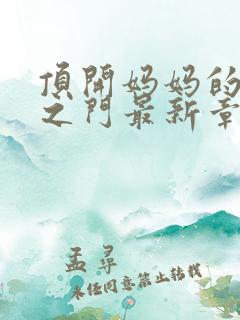 顶开妈妈的
之门最新章
孟寻
未经同意禁止转载